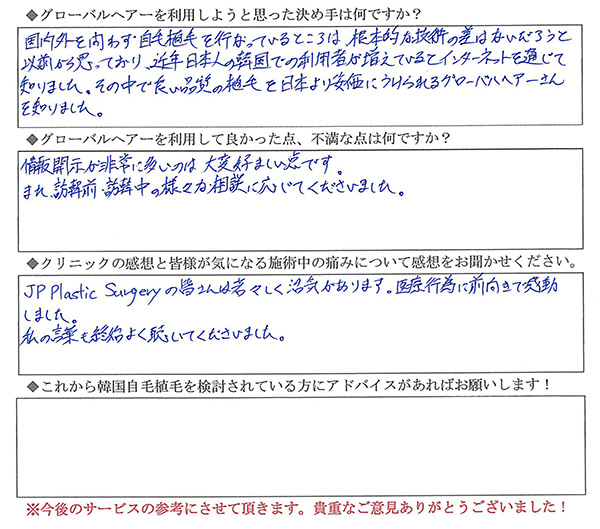 ◆グローバルヘアーを利用しようと思った決め手は何ですか？
国内外を問わず自毛植毛を行なっているところは 根本的な技術の差はないだろうと
以前から思っており、近年日本人の韓国での利用者が増えているとインターネットを通じて
知りました。その中で良い品質の植毛を日本より安価にうけられるグローバルヘアーさん
を知りました。
◆グローバルヘアーを利用して良かった点、不満な点は何ですか？
情報開示が非常に多いのは 大変好ましい点です。
また、訪韓前・訪韓中の様々な相談に応じてくださいました。
◆クリニックの感想と皆様が気になる施術中の痛みについて感想をお聞かせください。
JP Plastic Surgeryの皆さんは若々しく活気があります。医療行為に前向きで感動
しました。
私の言葉も終始よく聴いてくださいました。
◆これから韓国自毛植毛を検討されている方にアドバイスがあればお願いします！
※今後のサービスの参考にさせて頂きます。貴重なご意見ありがとうございました！